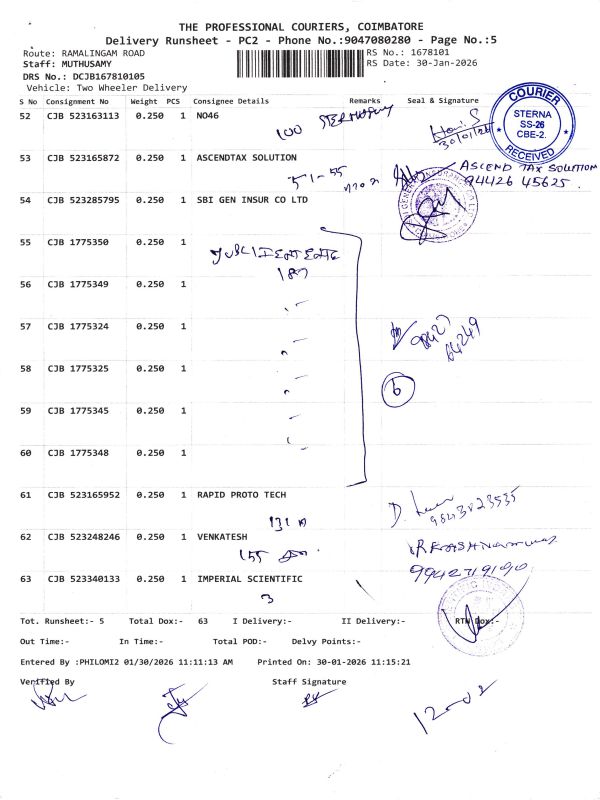 THE PROFESSIONAL COURIERS, COIMBATORE
Delivery Runsheet - PC2 - Phone No.:9047080280 - Page No.:5
Route: RAMALINGAM ROAD
RS No.: 1678101
Staff: MUTHUSAMY
RS Date: 30-Jan-2026
DRS No.: DCJB167810105
Vehicle: Two Wheeler Delivery
S No Consignment No Weight PCS Consignee Details Remarks Seal & Signature
52 CJB 523163113 0.250 1 NO46
100
30/01/26
COURIER
STERNA
SS-26
CBE-2.
RECEIVED
53 CJB 523165872 0.250 1 ASCENDTAX SOLUTION
51-55
ASCEND TAX SOLUTION
94426 45625.
54 CJB 523285795 0.250 1 SBI GEN INSUR CO LTD
55 CJB 1775350 0.250 1
187
56 CJB 1775349 0.250 1
57 CJB 1775324 0.250 1
98427
64249
58 CJB 1775325 0.250 1
6
59 CJB 1775345 0.250 1
60 CJB 1775348 0.250 1
61 CJB 523165952 0.250 1 RAPID PROTO TECH
131
9843823535
62 CJB 523248246 0.250 1 VENKATESH
155
9942719190
63 CJB 523340133 0.250 1 IMPERIAL SCIENTIFIC
3
Tot. Runsheet:- 5 Total Dox:- 63 I Delivery:- II Delivery:- RTN Dox:-
Out Time:- In Time:- Total POD:- Delvy Points:-
Entered By :PHILOMI2 01/30/2026 11:11:13 AM Printed On: 30-01-2026 11:15:21
Verified By Staff Signature